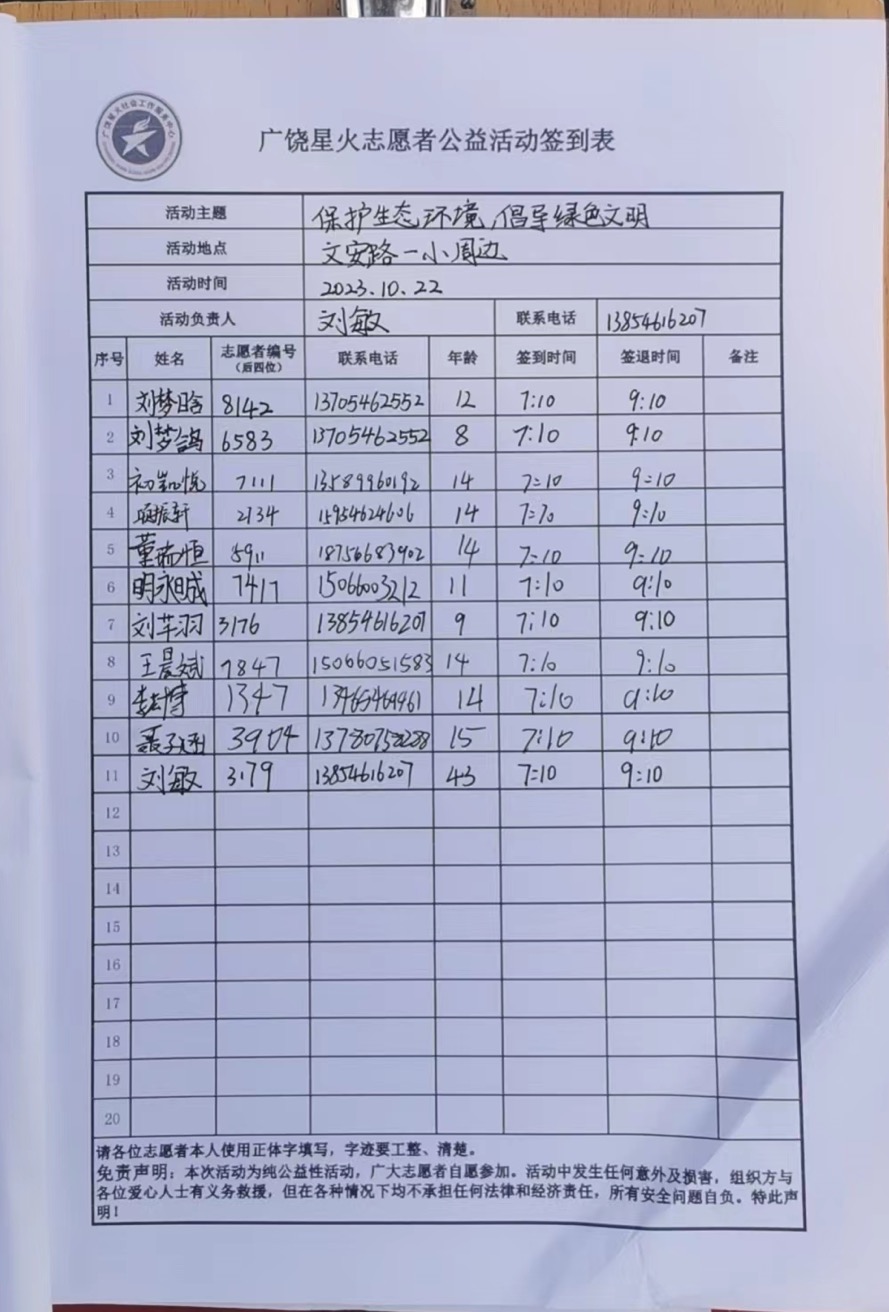 广饶星火社会工作服务中心
广饶星火志愿者公益活动签到表
活动主题 保护生态环境,倡导绿色文明
活动地点 文安路一小周边
活动时间 2023.10.22
活动负责人 刘敏 联系电话 13854616207
序号 姓名 志愿者编号(后四位) 联系电话 年龄 签到时间 签退时间 备注
1 刘梦晗 8142 13705462552 12 7:10 9:10
2 刘梦鸽 6583 13705462552 8 7:10 9:10
3 初凯悦 7111 13589960192 14 7:10 9:10
4 振轩 2134 15954624606 14 7:10 9:10
5 董瑞恒 5911 18756683902 14 7:10 9:10
6 明永晟 7417 15066003212 11 7:10 9:10
7 刘芊羽 3176 13854616207 9 7:10 9:10
8 王晨斌 7847 15066051583 14 7:10 9:10
9 1347 13465469961 14 7:10 9:10
10 聂子涵 3904 15 7:10 9:10
11 刘敏 3179 13854616207 43 7:10 9:10
12
13
14
15
16
17
18
19
20
请各位志愿者本人使用正体字填写,字迹要工整、清楚。
免责声明:本次活动为纯公益性活动,广大志愿者自愿参加。活动中发生任何意外及损害,组织方与
各位爱心人士有义务救援,但在各种情况下均不承担任何法律和经济责任,所有安全问题自负。特此声
明!